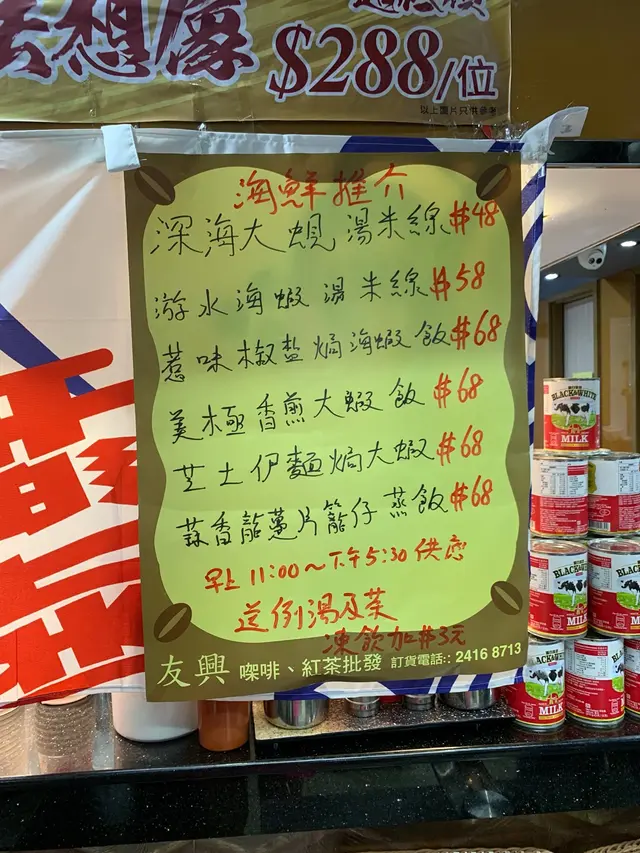 想像
$288/位
以上圖片只供參考
海鮮推介
深海大蜆湯米線 $48
游水海蝦湯米線 $58
惹味椒盐焗海蝦飯 $68
美極香煎大蝦飯 $68
芝士伊麵焗大蝦 $68
蒜香龍薑片籠仔蒸飯 $68
早上11:00~下午5:30供應
送例湯及茶
凍飲加$3元
友興 㗎啡、紅茶批發 訂貨電話:: 2416 8713
BLACK&WHITE
MILK
BLACK&WHITE
MILK
BLACK&WHITE
BLACK&WHITE
MILK